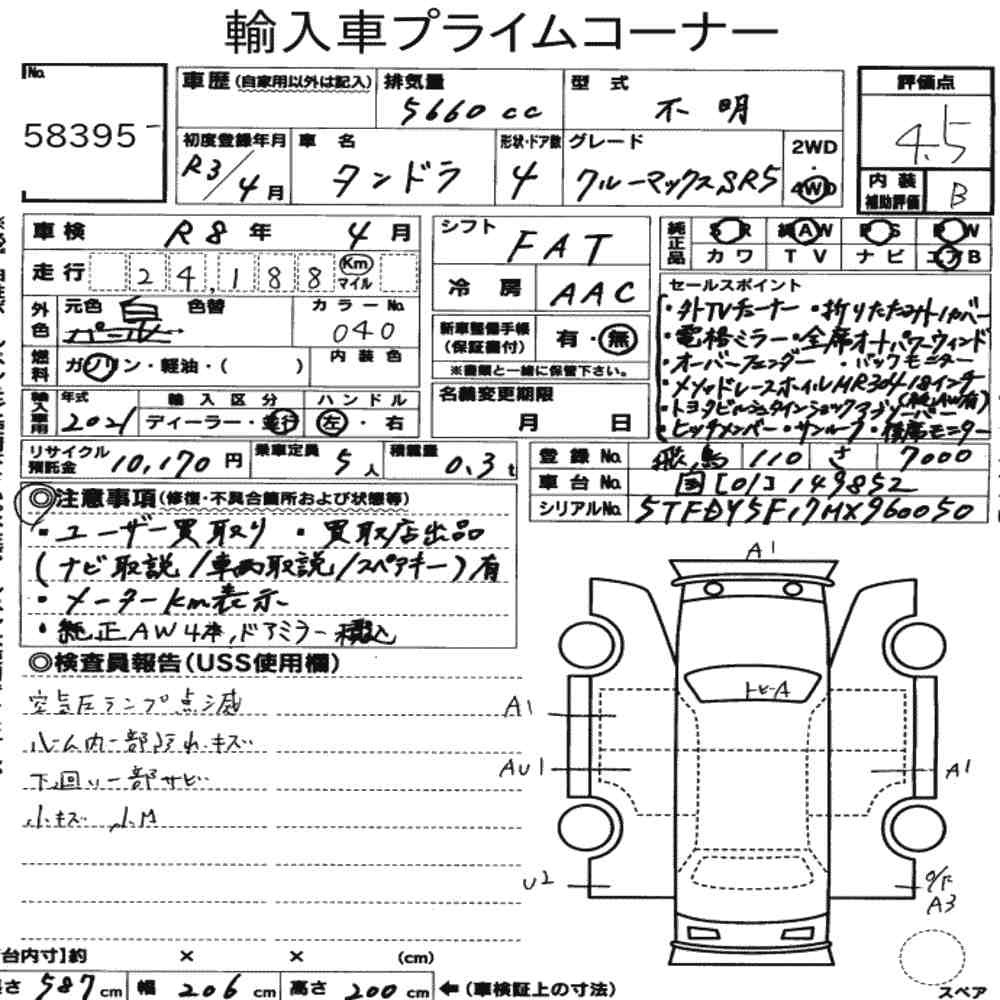 輸入車プライムコーナー
No.
58395
車歴(自家用以外は記入)
排気量
5660cc
型式
不明
評価点
4.5
内装
補助評価
B
初度登録年月
R3/4月
車名
タンドラ
形状・ドア数
4
グレード
クルーマックスSR5
2WD
・
4WD
車検
R8年 4月
走行
24,188
Km
マイル
外色
元色 白 色替
カラーNo.
040
燃料
ガソリン・軽油・( )
内装色
輸入車用
年式
2021
輸入区分
ディーラー・並行
ハンドル
左・右
シフト
FAT
冷房
AAC
新車整備手帳
(保証書付)
有・無
※書類と一緒に保管下さい。
名義変更期限
月 日
純正品
SR
純AW
PS
PW
カワ
TV
ナビ
エアB
セールスポイント
・外TVチューナー ・折りたたみトノカバー
・電格ミラー ・全席オートパワーウィンド
・オーバーフェンダー ・バックモニター
・メソッドレースホイルMR304 18インチ
・トヨタビルシュタインショックアブソーバー
・ヒッチメンバー ・サンルーフ ・後席モニター
リサイクル
預託金
10,170円
乗車定員
5人
積載量
0.3t
登録No.
飛鳥 110 さ 7000
車台No.
国[01]149852
シリアルNo.
5TFDY5F17MX960050
◎注意事項(修復・不具合箇所および状態等)
・ユーザー買取り ・買取店出品
(ナビ取説/車両取説/スペアキー)有
・メーターkm表示
・純正AW4本,ドアミラー積込
◎検査員報告(USS使用欄)
空気圧ランプ点滅
ルーム内一部汚れ・キズ
下回り一部サビ
小キズ 小M
A1
トビーA
A1
AU1
A1
U2
A3
スペア
台内寸]約 × × (cm)
長さ 587cm 幅 206cm 高さ 200cm ←(車検証上の寸法)